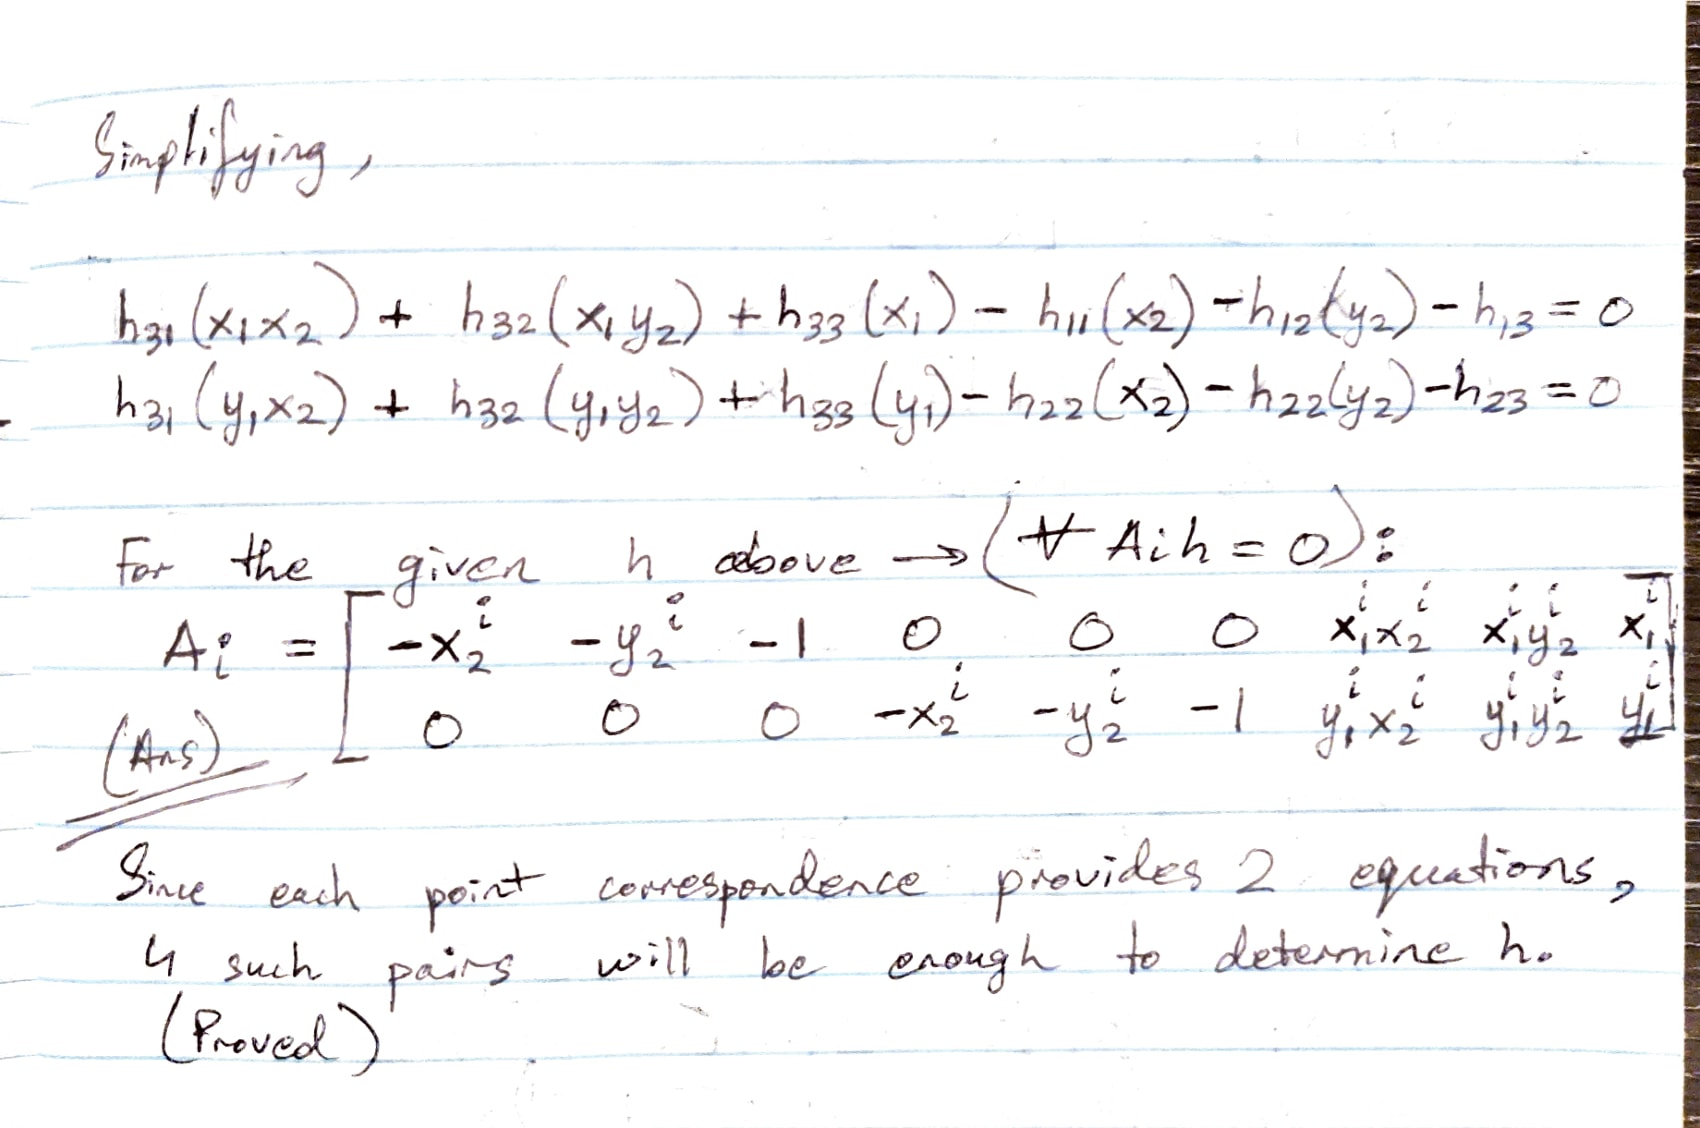 Simplifying,
h₃₁(x₁x₂) + h₃₂(x₁y₂) + h₃₃(x₁) - h₁₁(x₂) - h₁₂(y₂) - h₁₃ = 0
h₃₁(y₁x₂) + h₃₂(y₁y₂) + h₃₃(y₁) - h₂₂(x₂) - h₂₂(y₂) - h₂₃ = 0
For the given h above → (∀ Aih = 0):
Ai = [ -x₂ⁱ -y₂ⁱ -1 0 0 0 x₁ⁱx₂ⁱ x₁ⁱy₂ⁱ x₁ⁱ
0 0 0 -x₂ⁱ -y₂ⁱ -1 y₁ⁱx₂ⁱ y₁ⁱy₂ⁱ y₁ⁱ ]
(Ans)
Since each point correspondence provides 2 equations,
4 such pairs will be enough to determine h.
(Proved)